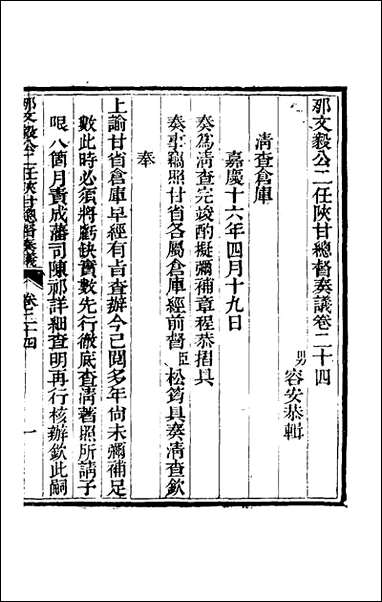 那文毅公二任陜甘總督奏議卷二十四
男容安恭輯
清查倉庫
嘉慶十六年四月十九日
奏爲清查完竣酌擬彌補章程恭摺具
奏事竊照甘省各屬倉庫經前督臣松筠具奏清查欽
奉
上諭甘省倉庫早經有旨查辦今已閱多年尙未彌補足
數此時必須將虧快實數先行徹底查淸著照所請予
限八箇月責成藩司陳祁詳細查明再行核辦欽此嗣
那文毅公二任陜甘總督奏議
卷二十四
一